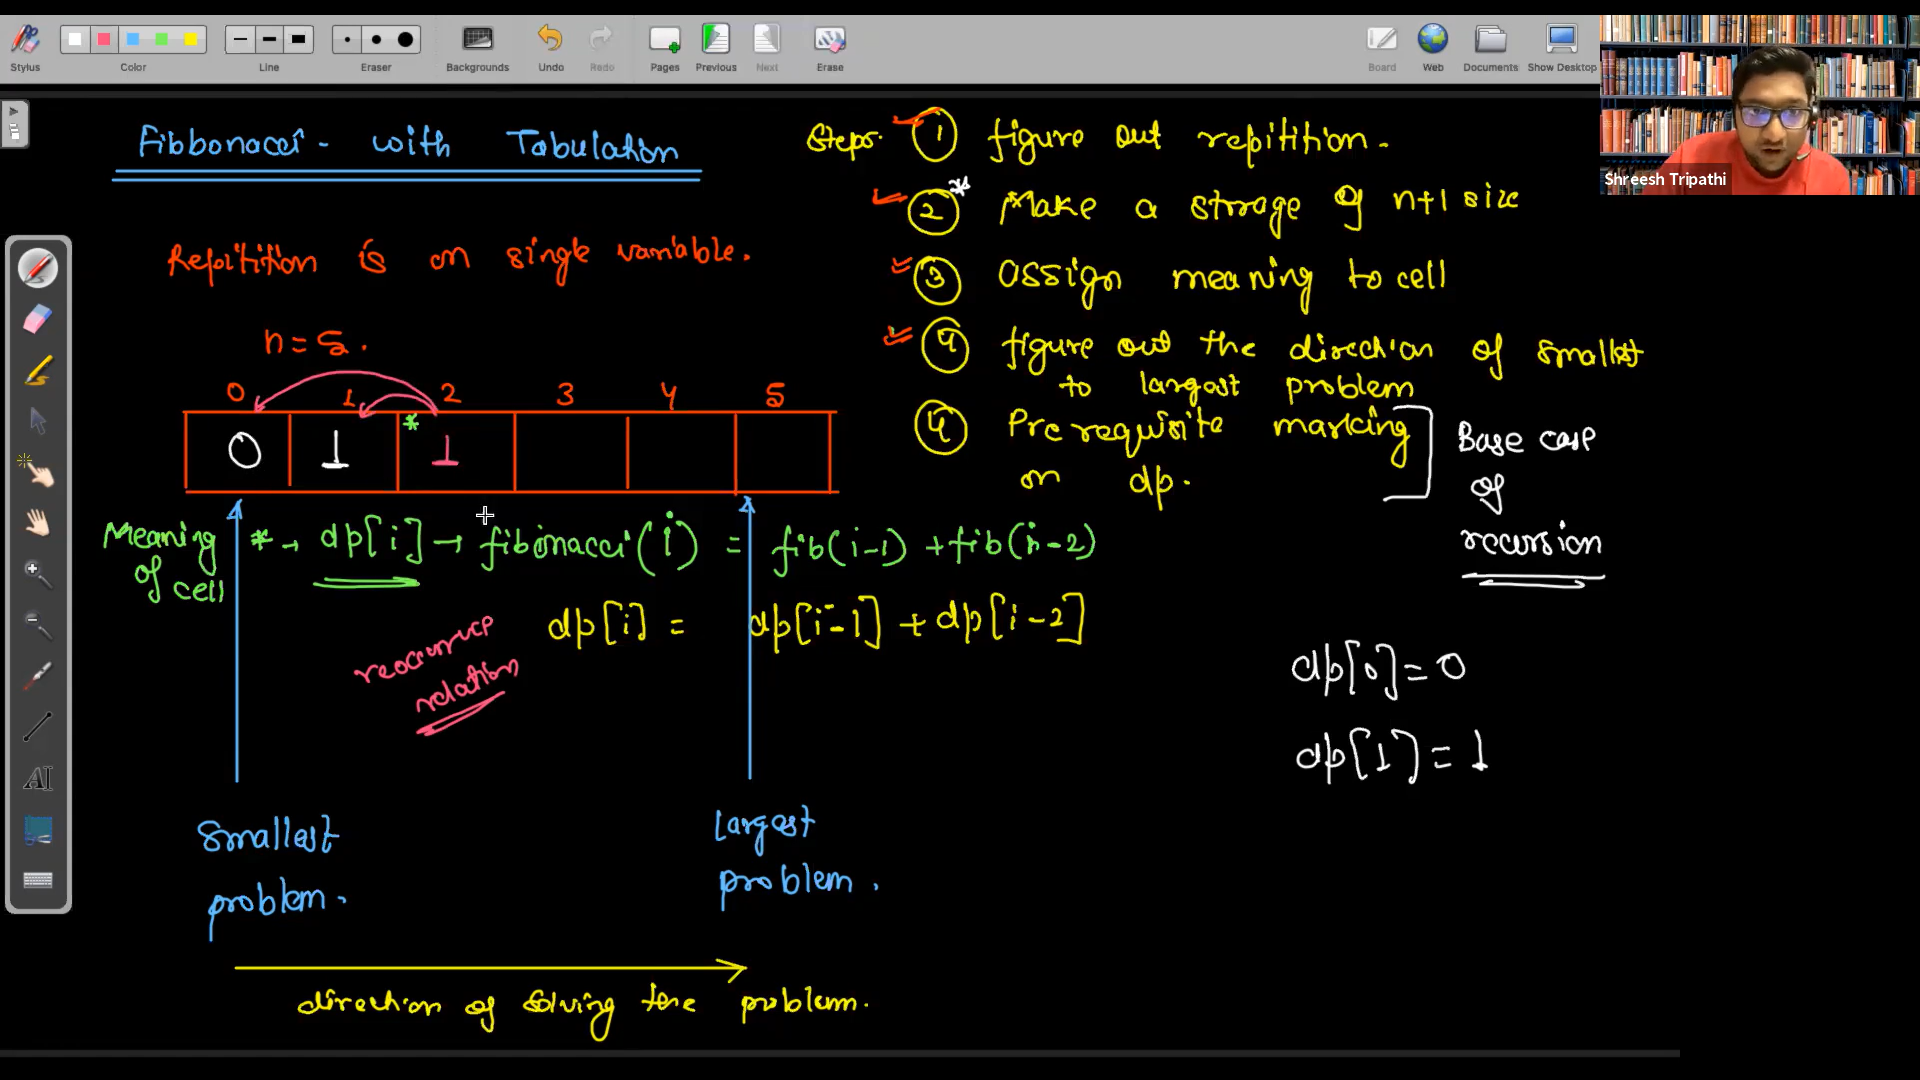 Stylus
Color
Line
Eraser
Backgrounds
Undo
Redo
Pages
Previous
Next
Erase
Board
Web
Documents
Show Desktop
Shreesh Tripathi
Fibbonacci - with Tabulation
Repitition is on single variable.
n = 5.
0 1 2 3 4 5
0 1 * 1
Meaning of cell
* → dp[i] → fibonacci(i) = fib(i-1) + fib(n-2)
dp[i] = dp[i-1] + dp[i-2]
reoccurrence
relation
Smallest
problem.
Largest
problem.
direction of solving the problem.
Steps. 1 figure out repitition.
2 * Make a storage of n+1 size
3 Assign meaning to cell
4 figure out the direction of smallest
to largest problem
4 Prerequisite marking
on dp.
Base case
of
recursion
dp[0] = 0
dp[1] = 1
AI